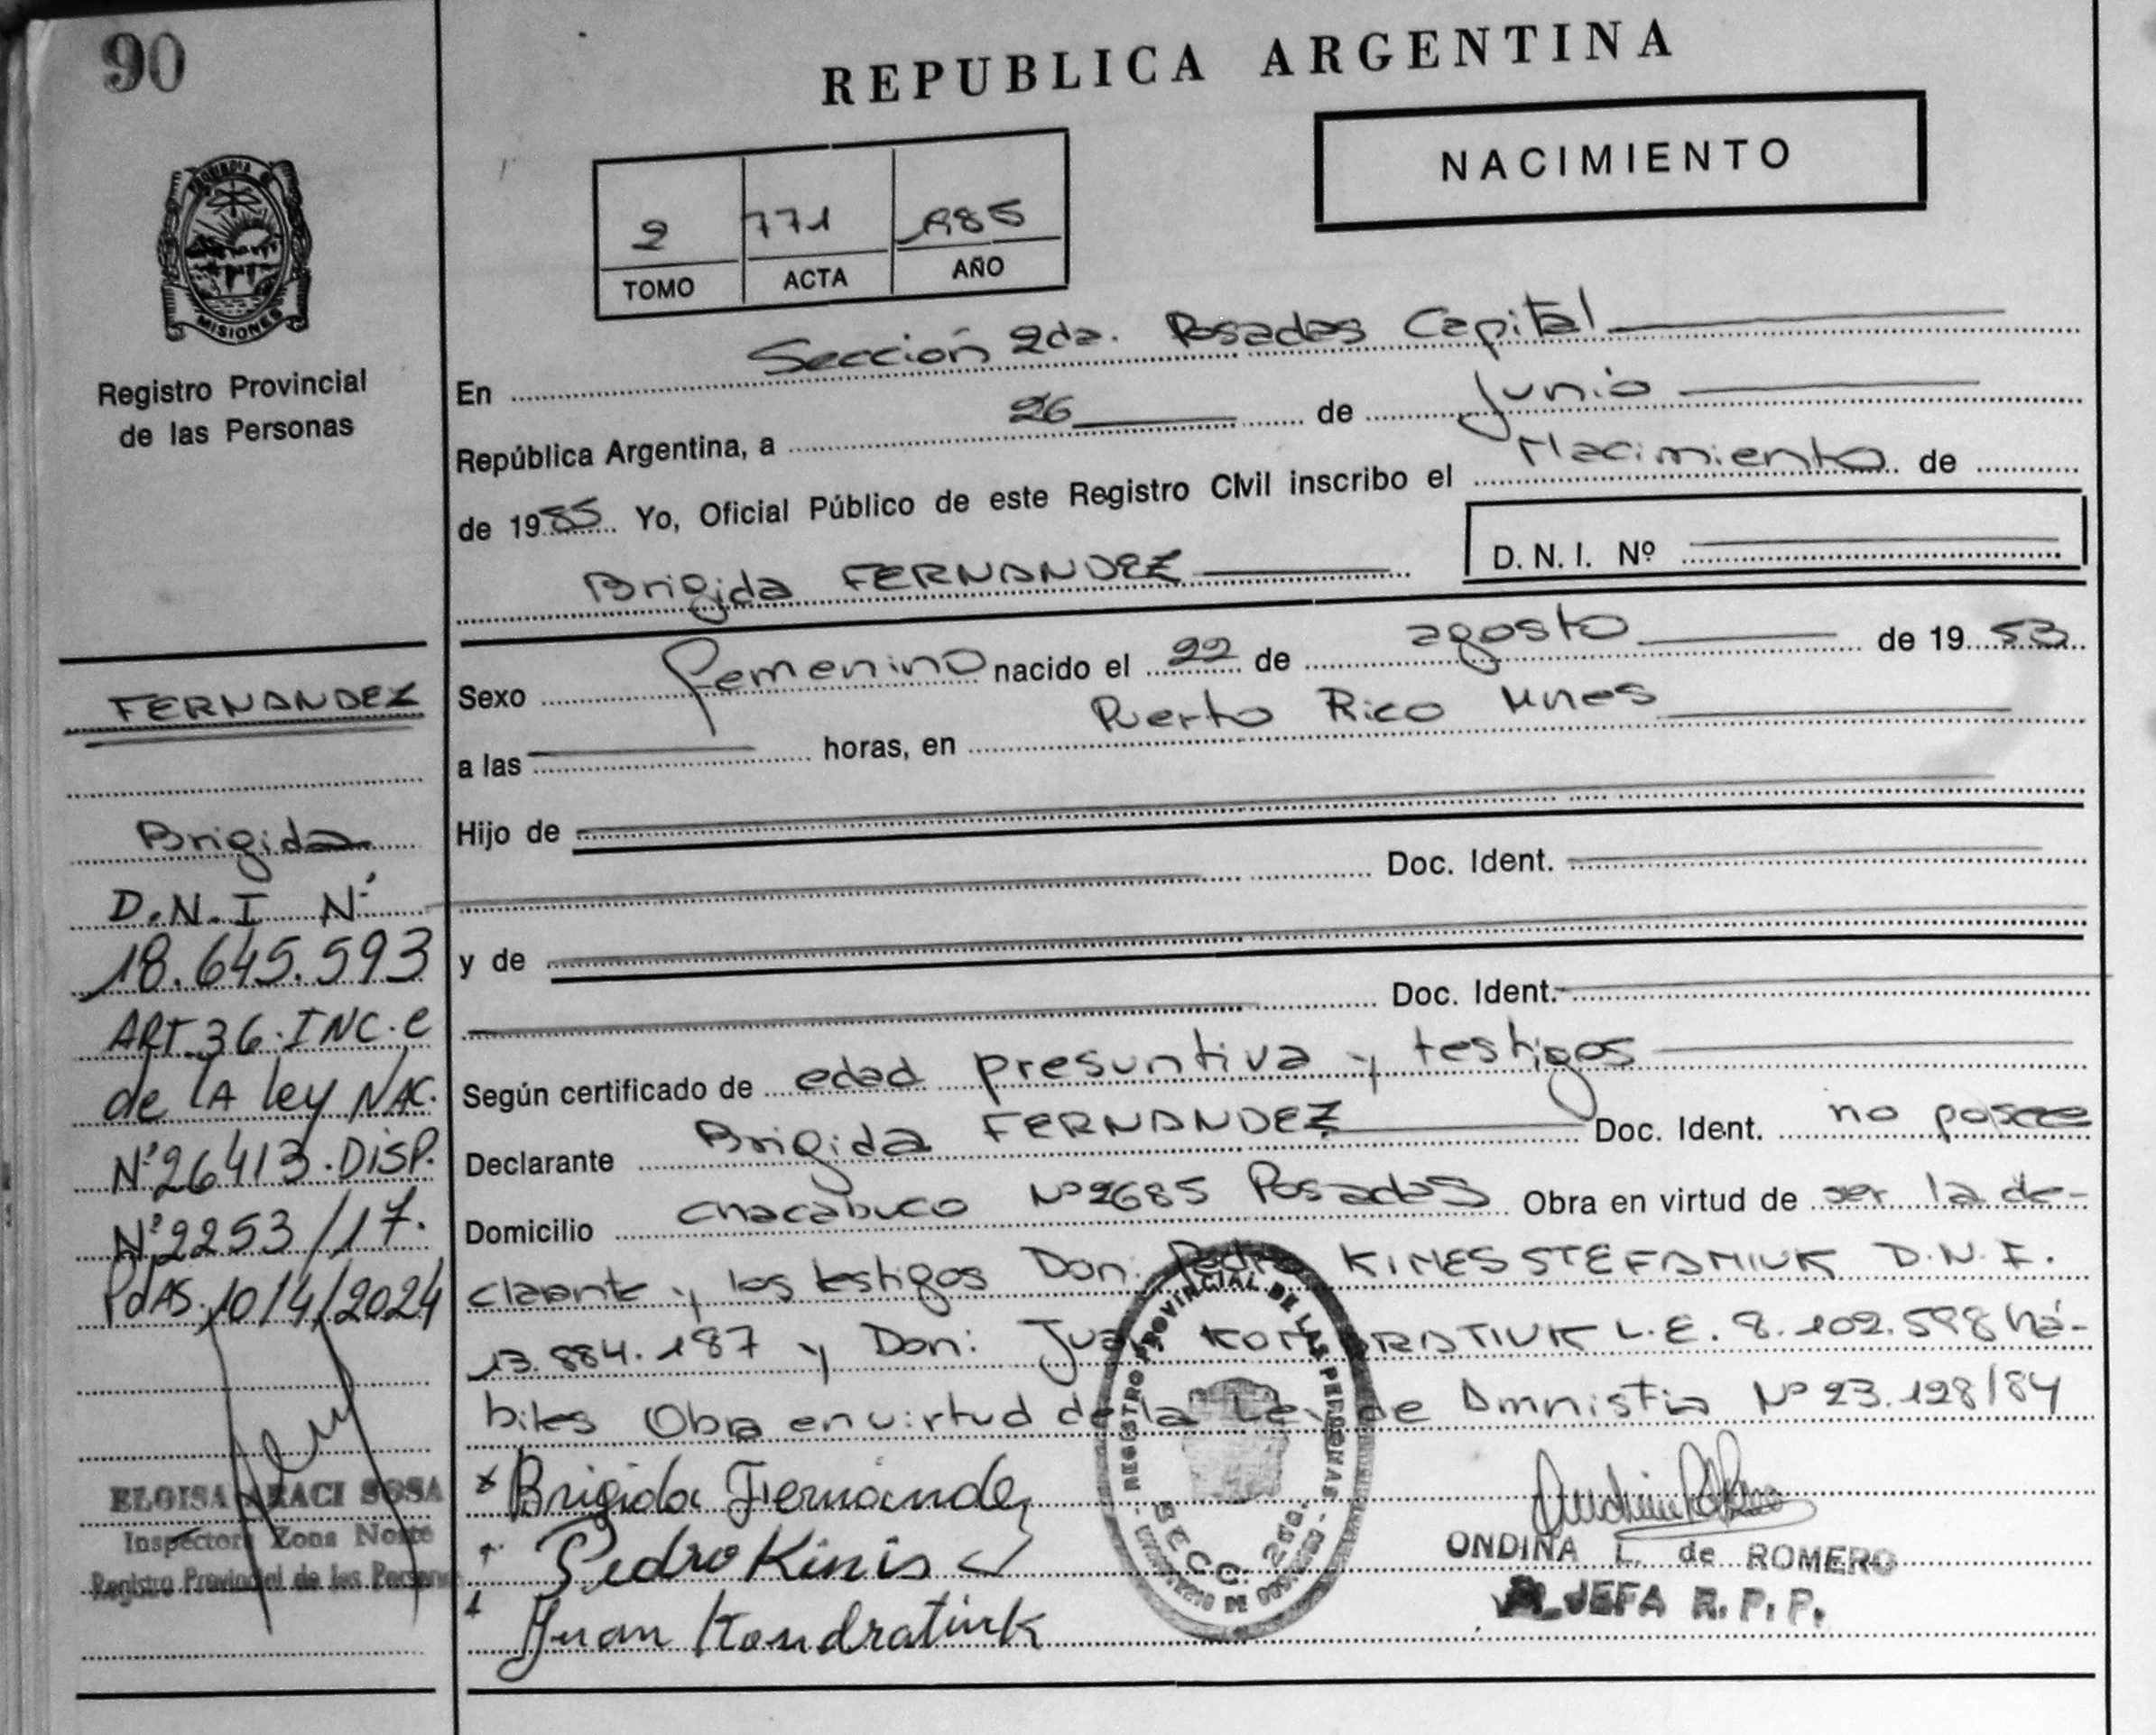 90
REPUBLICA ARGENTINA
NACIMIENTO
2 771 1985
TOMO ACTA AÑO
MISIONES
Registro Provincial
de las Personas
En Sección 2da. Posadas Capital
República Argentina, a 26 de Junio
de 1985 Yo, Oficial Público de este Registro Civil inscribo el Nacimiento de
D. N. I. Nº
Brigida FERNANDEZ
Sexo femenino nacido el 22 de agosto de 1953
a las horas, en Puerto Rico Mnes
Hijo de
Doc. Ident.
y de
Doc. Ident.
Según certificado de edad presuntiva y testigos
Declarante Brigida FERNANDEZ Doc. Ident. no posee
Domicilio chacabuco Nº 2685 Posadas Obra en virtud de ser la de-
clarante y los testigos Don: Pedro KINES STEFANIUK D.N.I.
13.884.187 y Don: Juan KONDRATIUK L.E. 8.102.598 há-
biles Obra en virtud de la Ley de Amnistia Nº 23.128/84
Brigida Fernandez
Pedro Kinis
Juan Kondratiuk
REGISTRO PROVINCIAL DE LAS PERSONAS
SECC. 2da.
ONDINA L. de ROMERO
JEFA R. P. P.
FERNANDEZ
Brigida
D.N.I Nº
18.645.593
ART.36.INC.C
de LA ley NAC.
Nº26413.DISP.
Nº2253/17.
PdAS.10/4/2024
ELOISA ARACI SOSA
Inspectora Zona Norte
Registro Provincial de las Personas